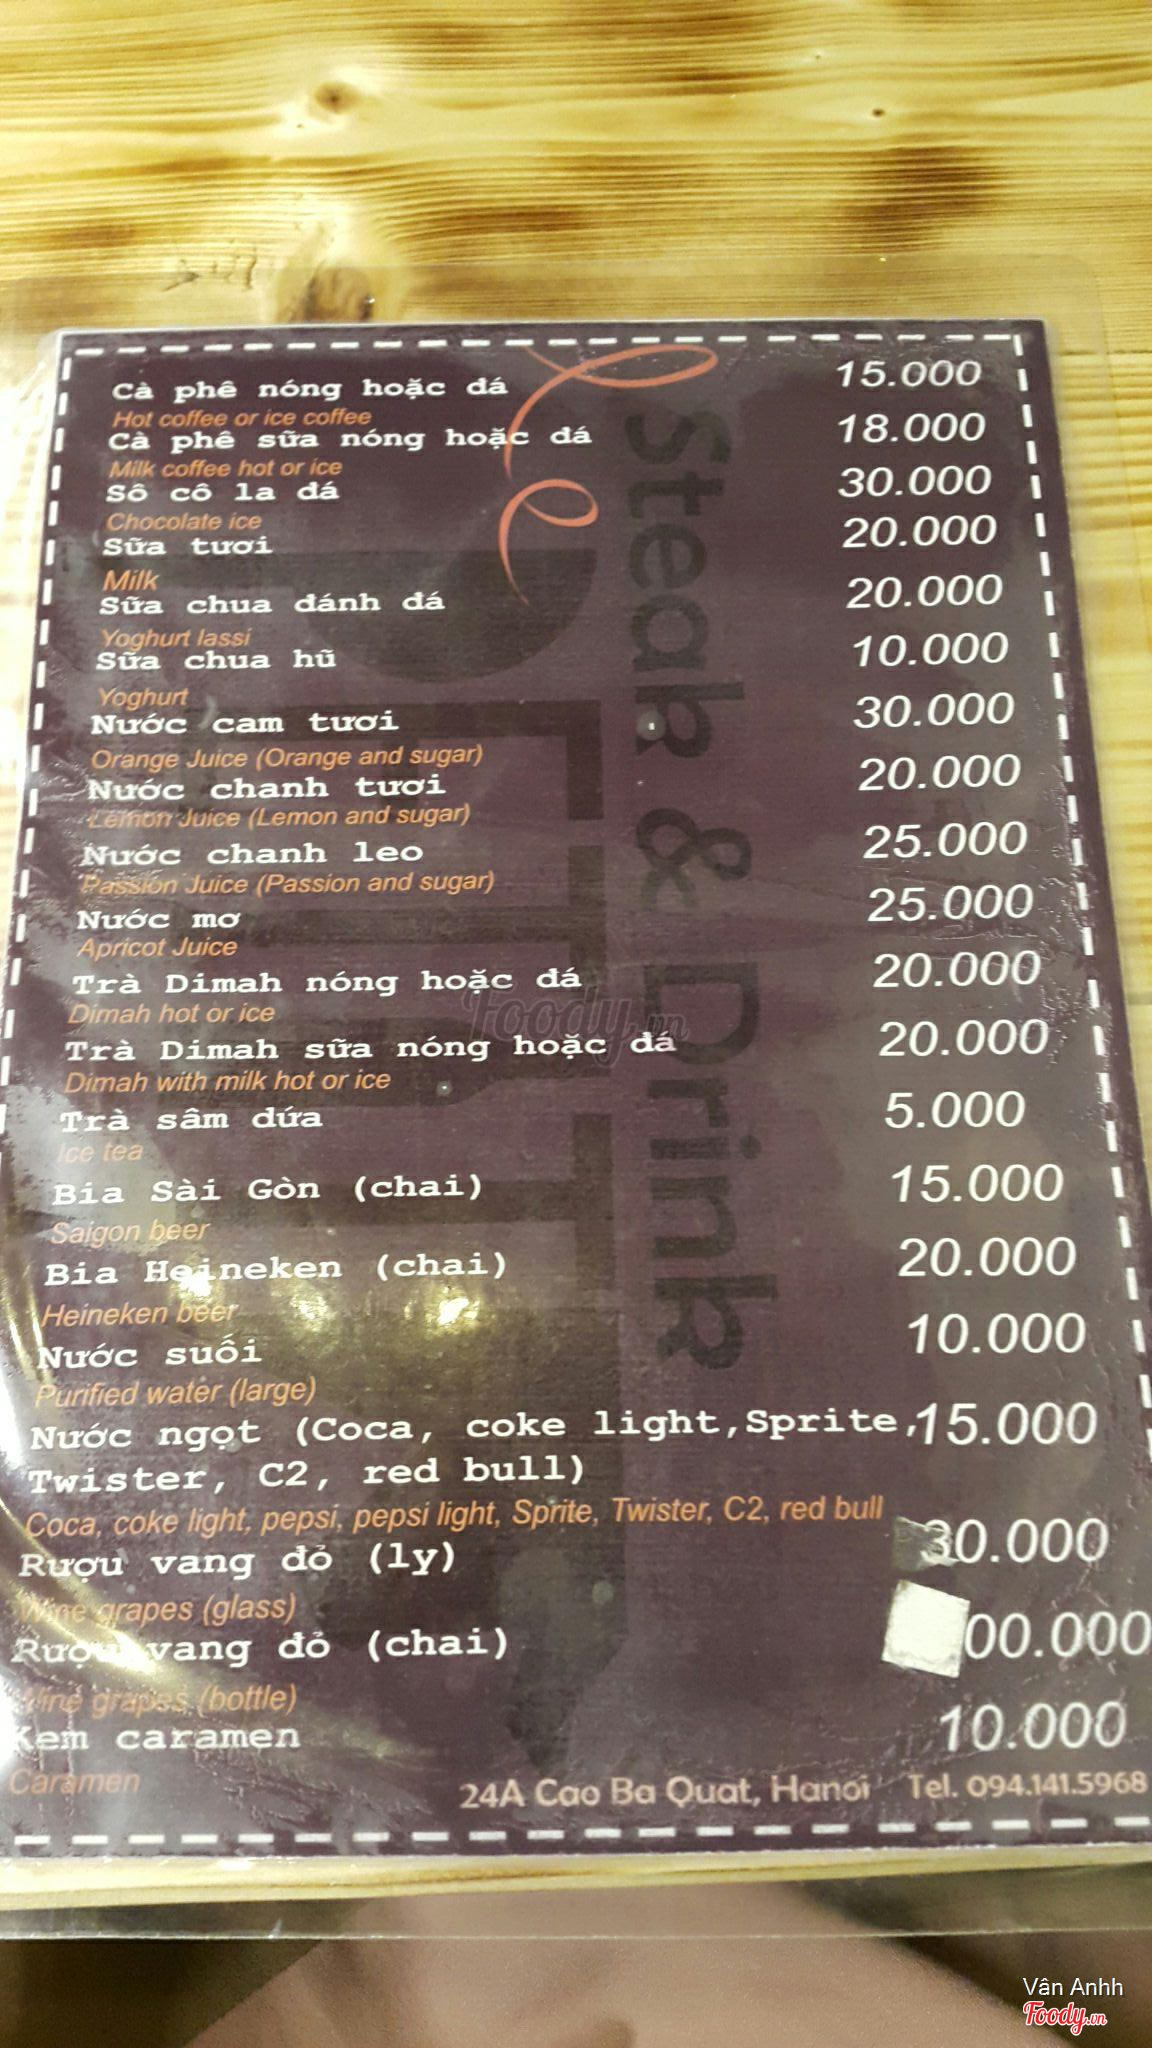 Cà phê nóng hoặc đá 15.000
Hot coffee or ice coffee
Cà phê sữa nóng hoặc đá 18.000
Milk coffee hot or ice
Sô cô la đá 30.000
Chocolate ice
Sữa tươi 20.000
Milk
Sữa chua đánh đá 20.000
Yoghurt lassi
Sữa chua hũ 10.000
Yoghurt
Nước cam tươi 30.000
Orange Juice (Orange and sugar)
Nước chanh tươi 20.000
Lemon Juice (Lemon and sugar)
Nước chanh leo 25.000
Passion Juice (Passion and sugar)
Nước mơ 25.000
Apricot Juice
Trà Dimah nóng hoặc đá 20.000
Dimah hot or ice
Trà Dimah sữa nóng hoặc đá 20.000
Dimah with milk hot or ice
Trà sâm dứa 5.000
Ice tea
Bia Sài Gòn (chai) 15.000
Saigon beer
Bia Heineken (chai) 20.000
Heineken beer
Nước suối 10.000
Purified water (large)
Nước ngọt (Coca, coke light,Sprite, 15.000
Twister, C2, red bull)
Coca, coke light, pepsi, pepsi light, Sprite, Twister, C2, red bull
Rượu vang đỏ (ly) 30.000
Wine grapes (glass)
Rượu vang đỏ (chai) 00.000
Wine grapes (bottle)
Kem caramen 10.000
Caramen
24A Cao Ba Quat, Hanoi Tel. 094.141.5968
Steak & Drink
Foody.vn
Vân Anhh
Foody.vn